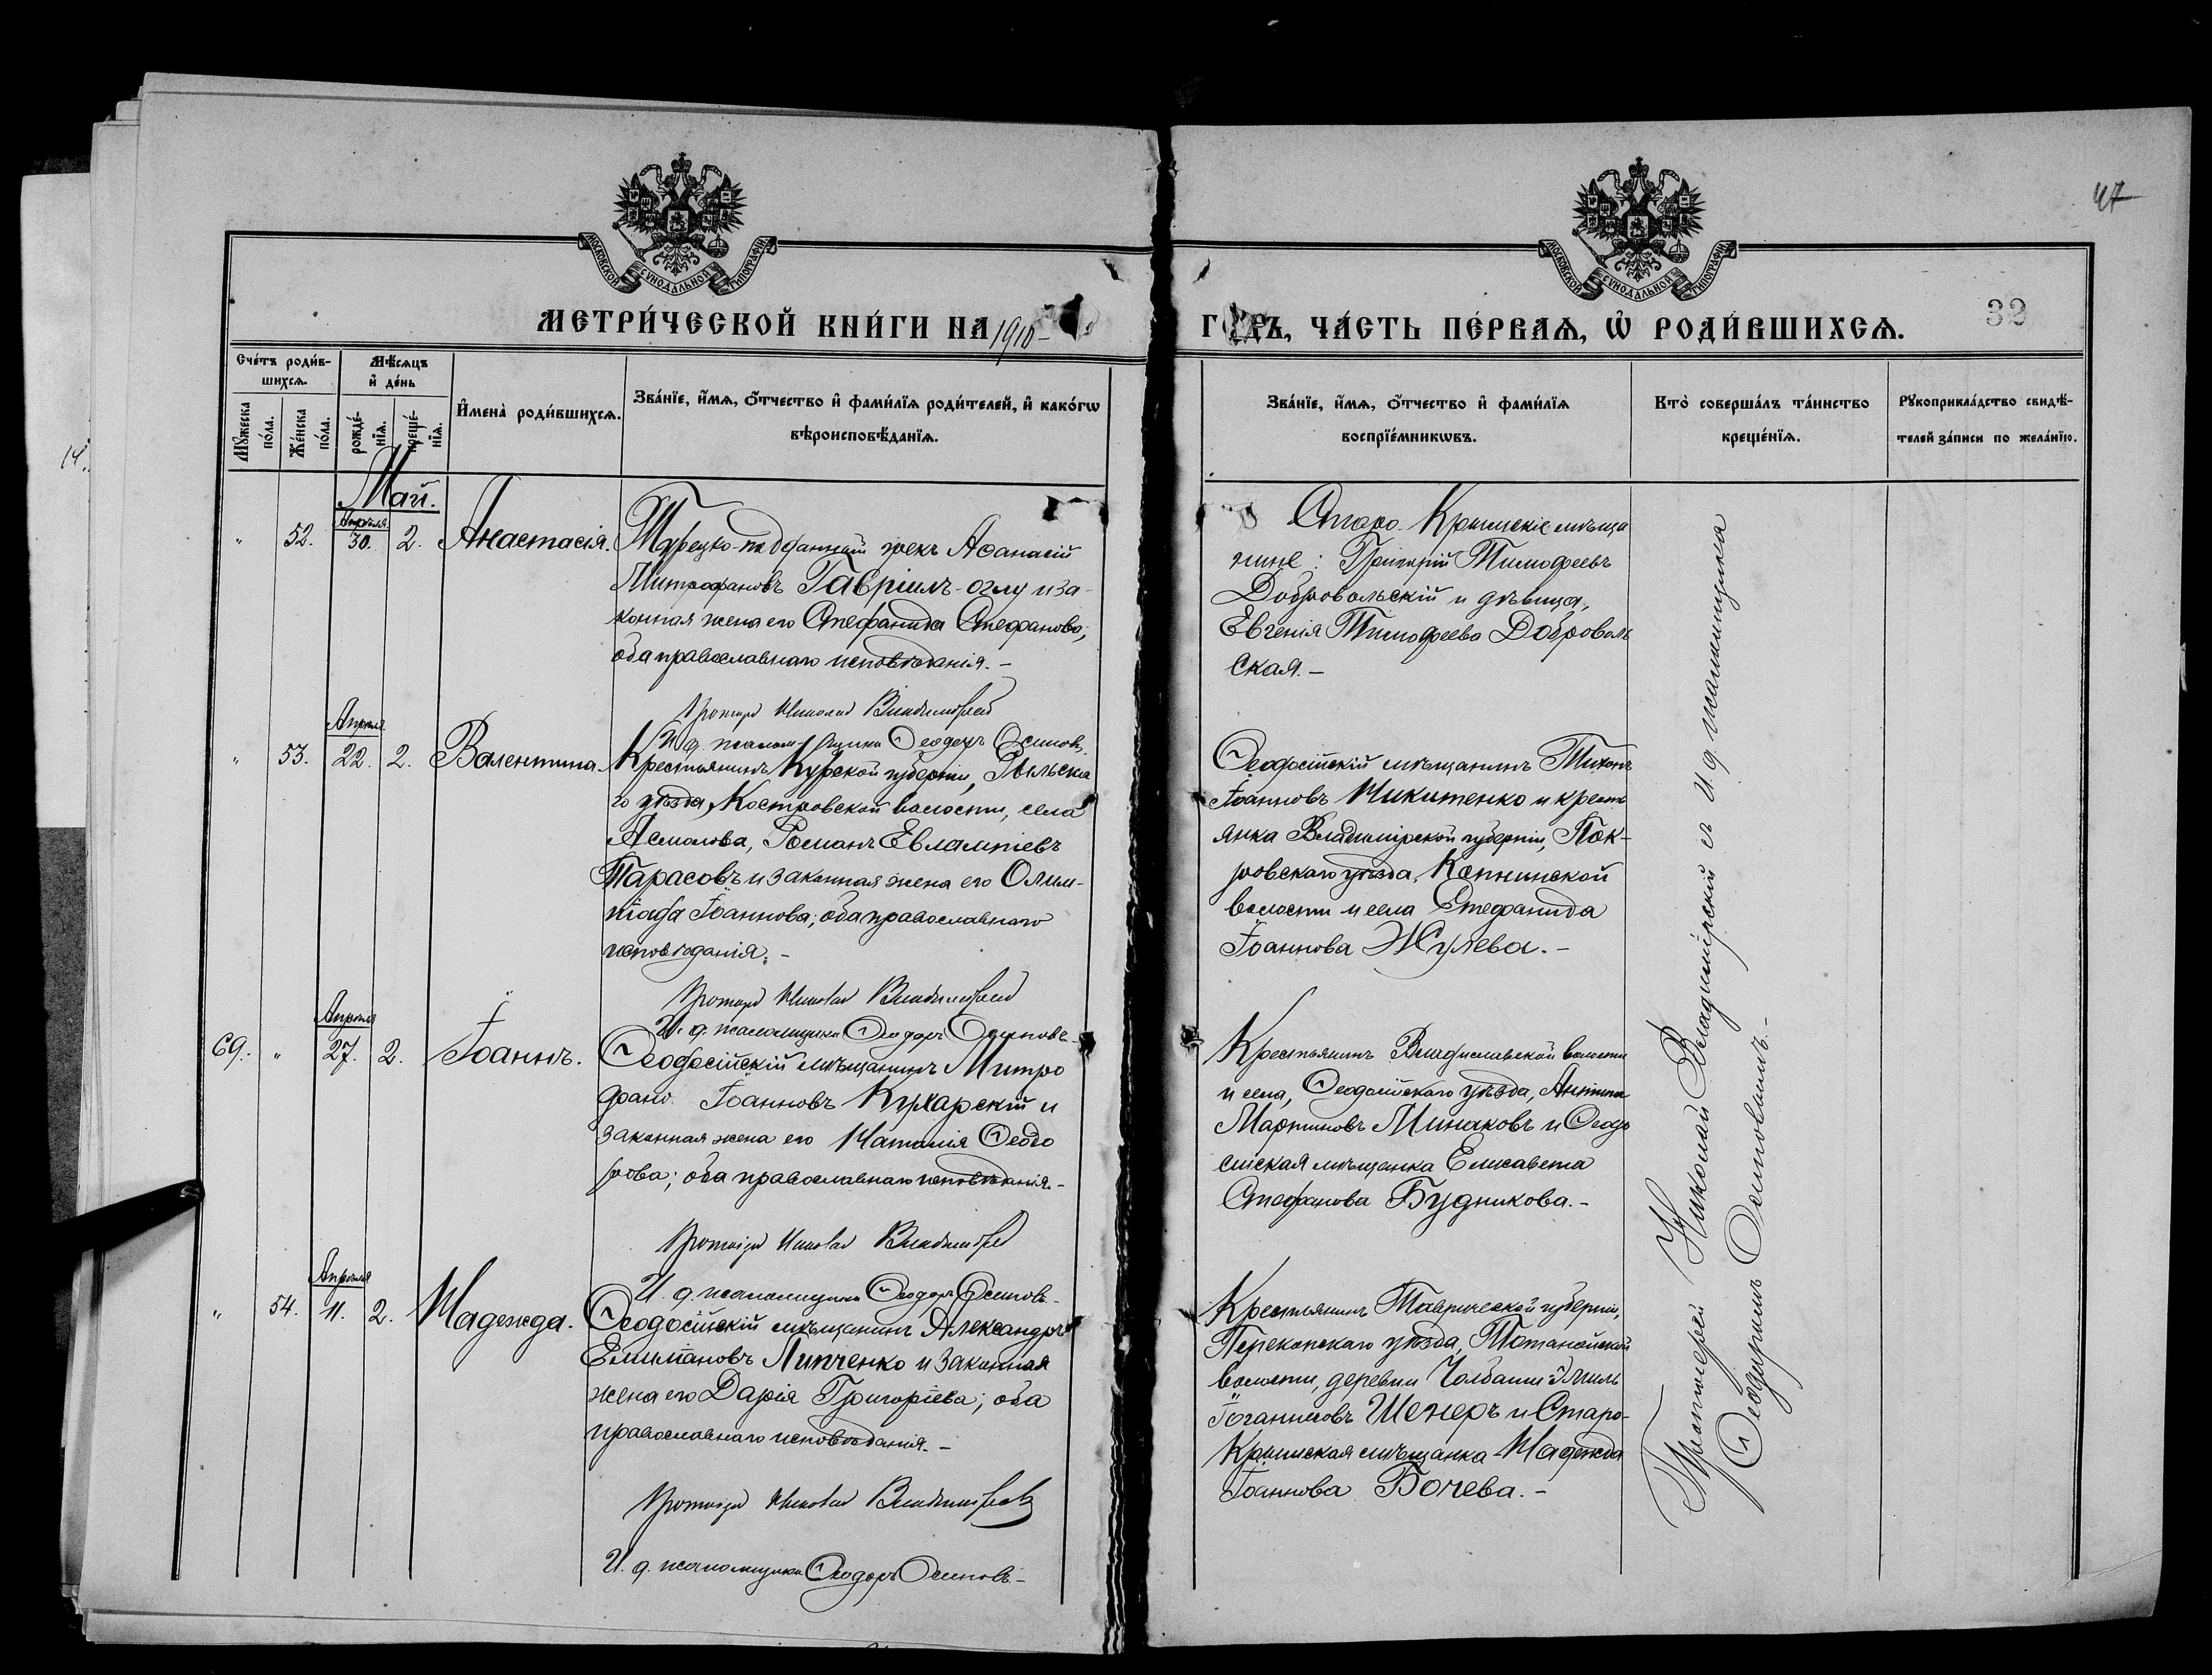 47
32
МОСКОВСКОЙ СѴНОДАЛЬНОЙ ТИПОГРАФІИ
МОСКОВСКОЙ СѴНОДАЛЬНОЙ ТИПОГРАФІИ
МЕТРИ́ЧЕСКОЙ КНИ́ГИ НА 1910
ГОДЪ, ЧА́СТЬ ПЕ́РВАѦ, Ѡ҆ РОДИ́ВШИХСѦ.
Сче́тъ роди́в-
шихсѧ.
Мѣ́сѧцъ
и҆ де́нь
Мꙋ́жеска
по́ла.
Же́нска
по́ла.
рожде́-
нїѧ.
креще́-
нїѧ.
И҆мена̀ роди́вшихсѧ.
Зва́нїе, и҆́мѧ, ѻ҆́тчество и҆ фами́лїѧ роди́телей, и҆ како́гѡ
вѣроисповѣ́данїѧ.
Зва́нїе, и҆́мѧ, ѻ҆́тчество и҆ фами́лїѧ
воспрїе́мникѡвъ.
Кто̀ соверша́лъ та́инство
креще́нїѧ.
Рꙋкоприкла́дство свидѣ́-
телей за́писи по жела́нїю.
Май.
" 52. Апрѣля 30. 2. Анастасія.
Турецко-подданный грекъ Аѳанасій
Митрофановъ Гавріилъ-оглу и за-
конная жена его Стефанида Стефанова;
оба православнаго исповѣданія.-
Протоіерей Николай Владимірскій
И. д. псаломщика Ѳеодоръ Осиповъ.
Старо-Крымскіе мѣща
нине: Григорій Тимофеевъ
Добровольскій и дѣвица,
Евгенія Тимофеева Доброволь
ская.-
" 53. Апрѣля 22. 2. Валентина.
Крестьянинъ Курской губерніи, Рыльска
го уѣзда, Костровской волости, села
Асмолова, Романъ Евлампіевъ
Тарасовъ и законная жена его Олим-
піада Іоаннова; оба православнаго
исповѣданія.-
Протоіерей Николай Владимірскій
И. д. псаломщика Ѳеодоръ Осиповъ.
Ѳеодосійскій мѣщанинъ Тихонъ
Іоанновъ Никитенко и кресть
янка Владимірской губерніи, Пок-
ровскаго уѣзда, Копнинской
волости и села Стефанида
Іоаннова Жулева.-
69. " Апрѣля 27. 2. Іоаннъ.
Ѳеодосійскій мѣщанинъ Митро
фанъ Іоанновъ Кухарскій и
законная жена его Наталія Ѳеодо
рова; оба православнаго исповѣданія.-
Протоіерей Николай Владимірскій
И. д. псаломщика Ѳеодоръ Осиповъ.
Крестьянинъ Владиславской волости
и села, Ѳеодосійскаго уѣзда, Антипа
Мартиновъ Минаковъ и Ѳеодо
сійская мѣщанка Елисавета
Стефанова Будникова.-
" 54. Апрѣля 11. 2. Надежда.
Ѳеодосійскій мѣщанинъ Александръ
Емиліановъ Липченко и законная
жена его Дарія Григоріева; оба
православнаго исповѣданія.-
Протоіерей Николай Владимірскій
И. д. псаломщика Ѳеодоръ Осиповъ.-
Крестьянинъ Таврической губерніи,
Перекопскаго уѣзда,
волости, деревни
Іоганнесовъ Шенеръ и Старо-
Крымская мѣщанка Надежда
Іоаннова Бочева.-
Протоіерей Николай Владимірскій съ И. д. псаломщика
Ѳеодоромъ Осиповымъ.-